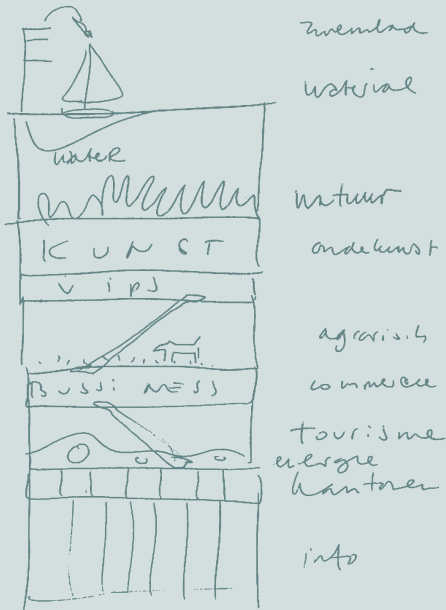 zwembad
waterial
WATER
natuur
KUNST
VIPS
agrarisch
BUSSINESS
commercie
tourisme
energie
kantoren
info